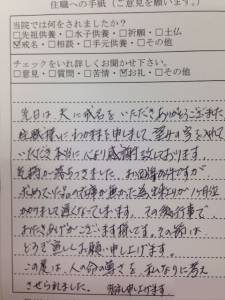 住職への手紙（ご意見を願います。）
当院では何をされましたか？
□先祖供養 □水子供養 □祈願 □土仏
☑戒名 □相談 □手元供養 □その他
チェックをいれ詳しくお聞かせ下さい。
□意見 □質問 □苦情 ☑お礼 □その他
先日は夫に戒名をいただきありがとうございました
住職様にわがままを申しまして、望みの字を入れて
いただき本当に心より感謝致しております。
気持が落ちつきました。お位牌の件ですが
求めていた品の在庫が無かった為出来上りが1ヶ月位
かかりまして遅くなってしまいます。その後行事で
おたずねがございます様です。その節は
どうぞ宜しくお願い申し上げます。
この度は、人の命の尊さを 私なりに考え
させられました。 御礼申し上げます